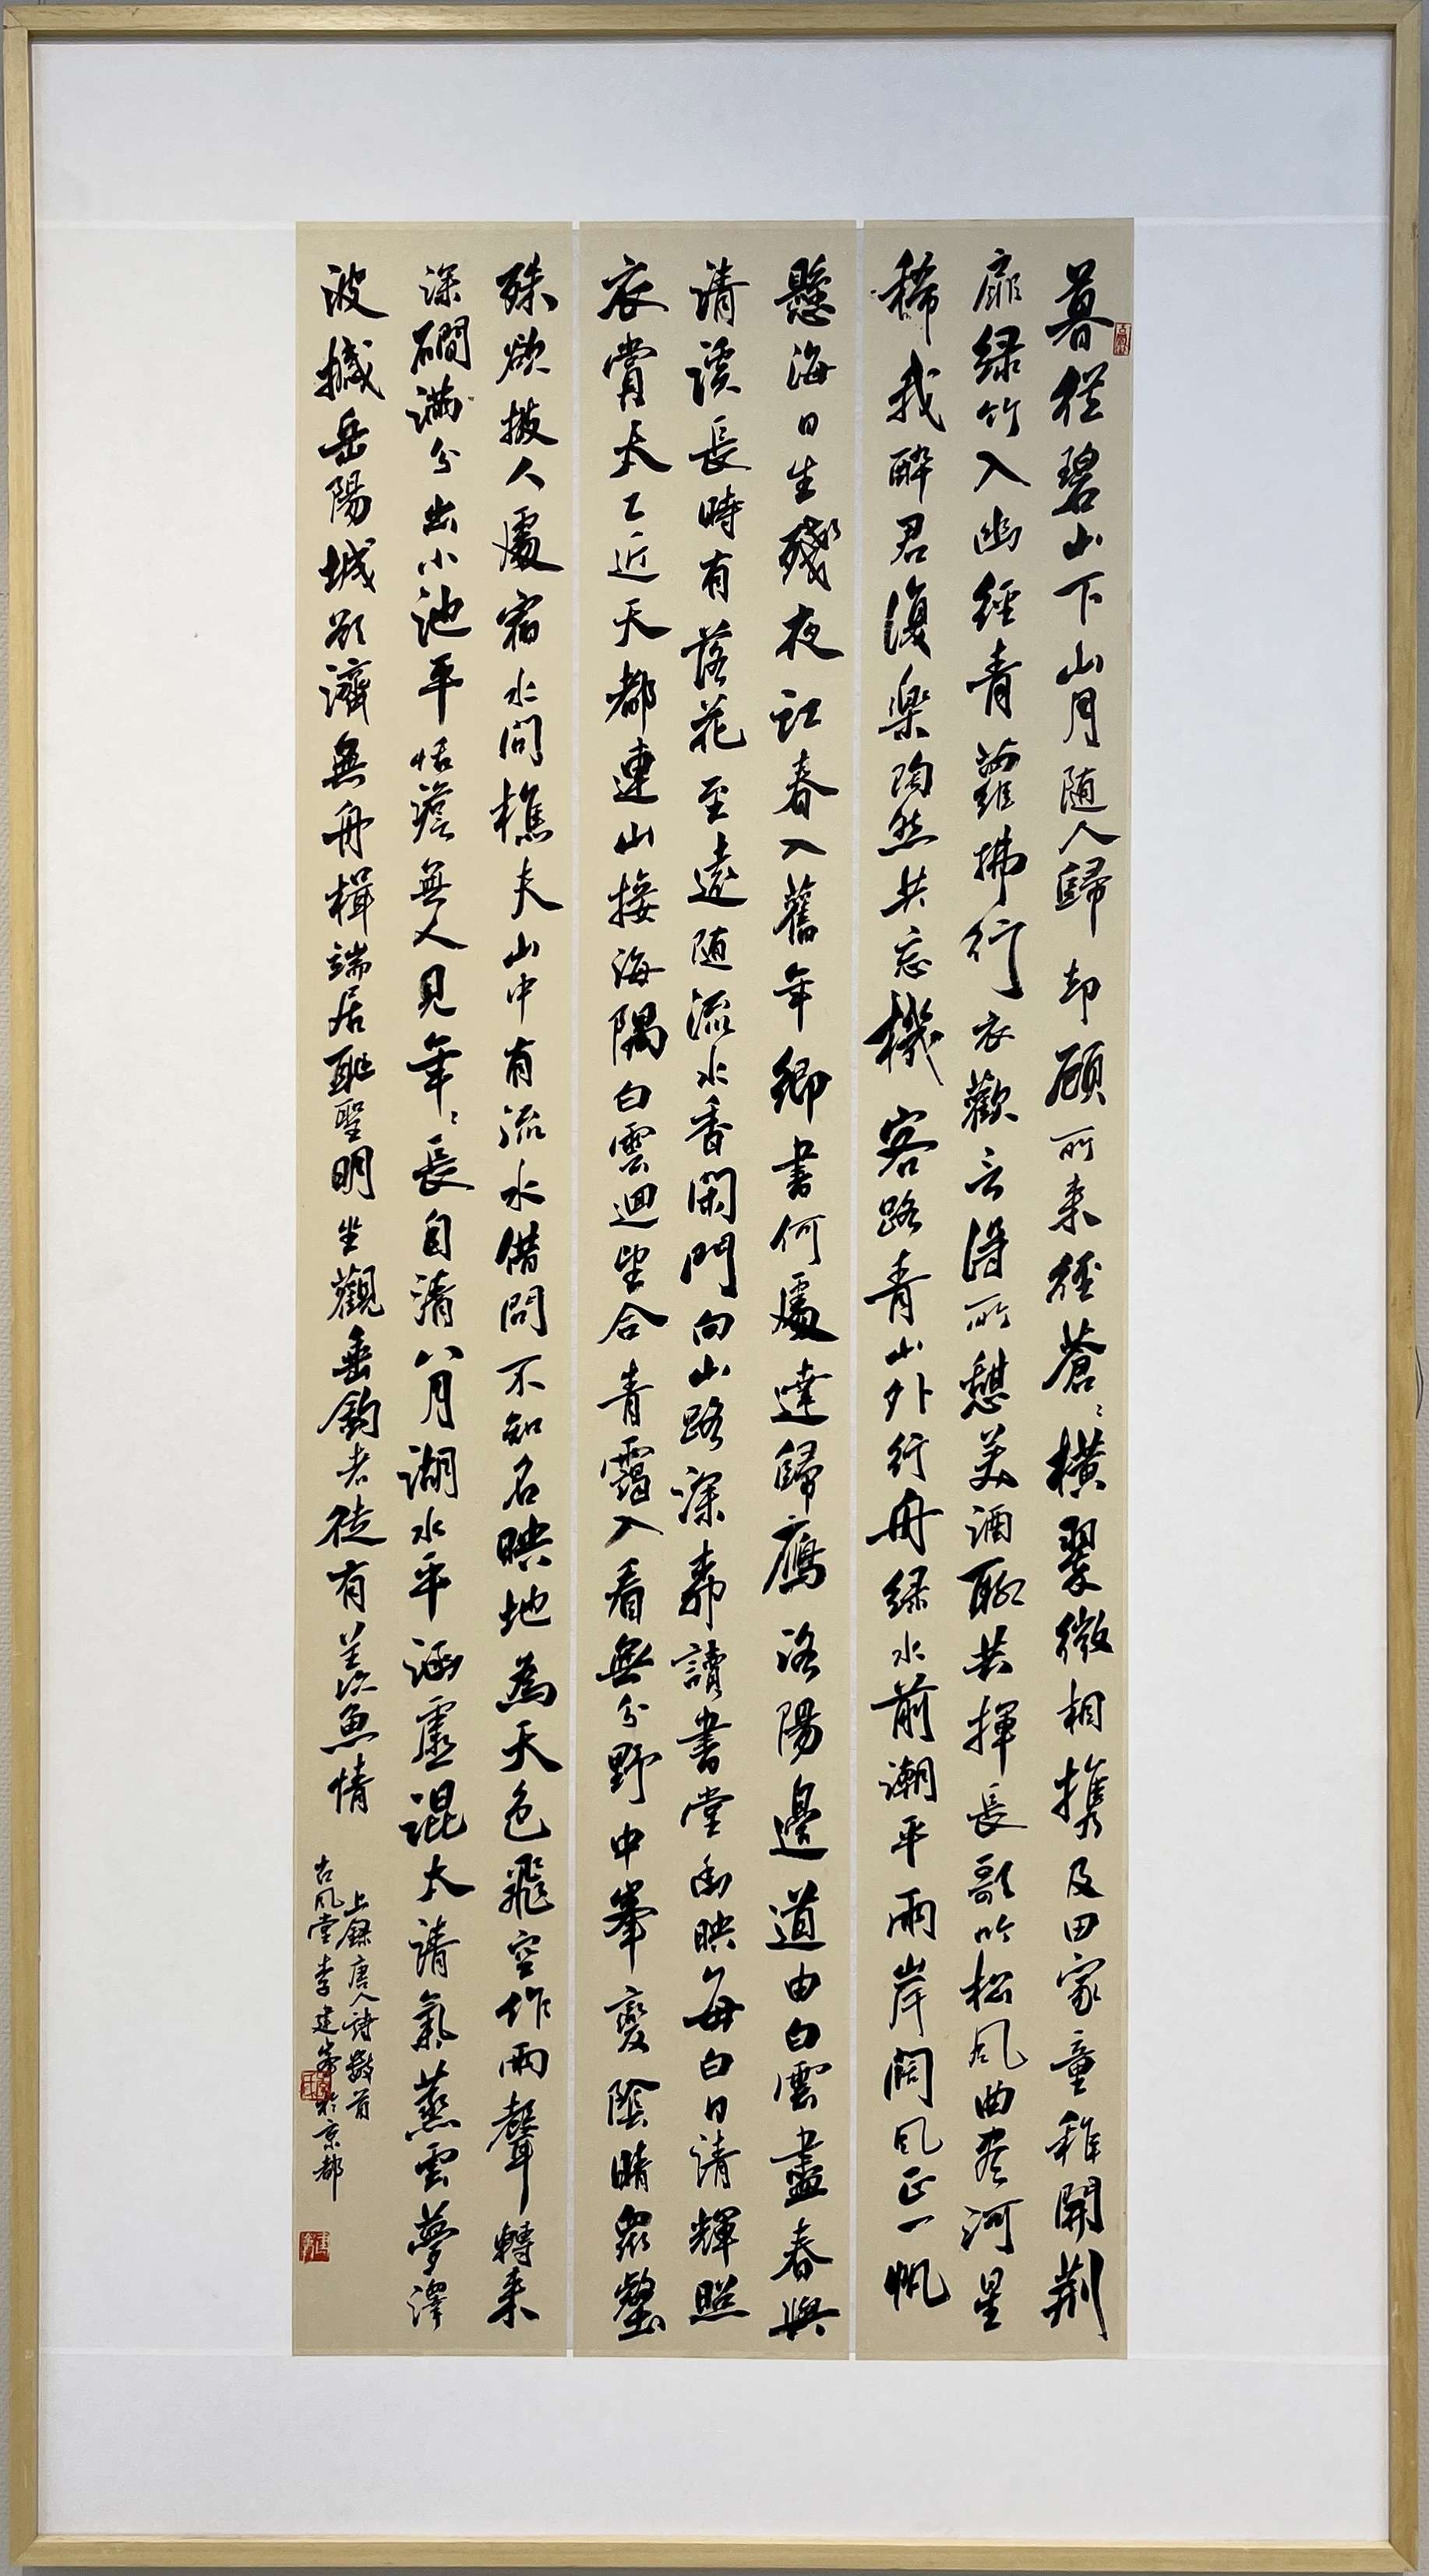 暮從碧山下山月随人歸却顧所来徑蒼〻橫翠微相携及田家童稚開荆
扉绿竹入幽徑青蘿拂行衣歡言得所憩美酒聊共揮長歌吟松风曲尽河星
稀我醉君復樂陶然共忘機客路青山外行舟绿水前潮平兩岸闊风正一帆
懸海日生殘夜江春入舊年鄉書何處達歸鴈洛陽邊道由白雲盡春與
清溪長時有落花至遠随流水香閑門向山路深柳讀書堂幽映每白日清輝照
衣賞太乙近天都連山接海隅白雲迴望合青靄入看無分野中峯變陰晴衆壑
殊欲投人處宿水问樵夫山中有流水借問不知名映地為天色飛空作雨聲轉来
深澗滿分出小池平恬澹無人見年〻長自清八月湖水平涵虚混太清氣蒸雲夢澤
波撼岳陽城欲濟無舟楫端居耻聖明坐觀垂釣者徒有羨魚情
上錄唐人詩數首
古风堂李建峯於京都